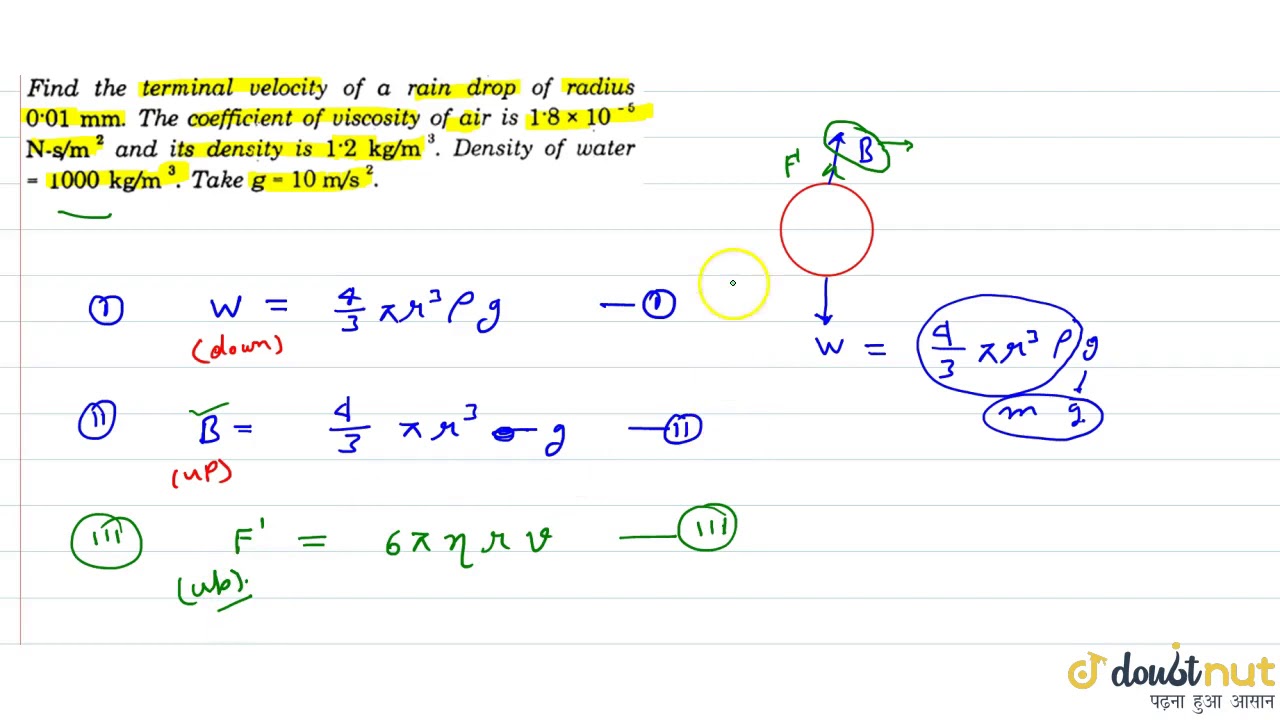 Find the terminal velocity of a rain drop of radius
0·01 mm. The coefficient of viscosity of air is 1·8 × 10⁻⁵
N-s/m² and its density is 1·2 kg/m³. Density of water
= 1000 kg/m³. Take g = 10 m/s².
F' B
I W = 4/3 π r³ ρ g — I
(down)
W = 4/3 π r³ ρ g
m g
II B = 4/3 π r³ g — II
(up)
III F' = 6 π η r v — III
(up).
doubtnut
पढ़ना हुआ आसान